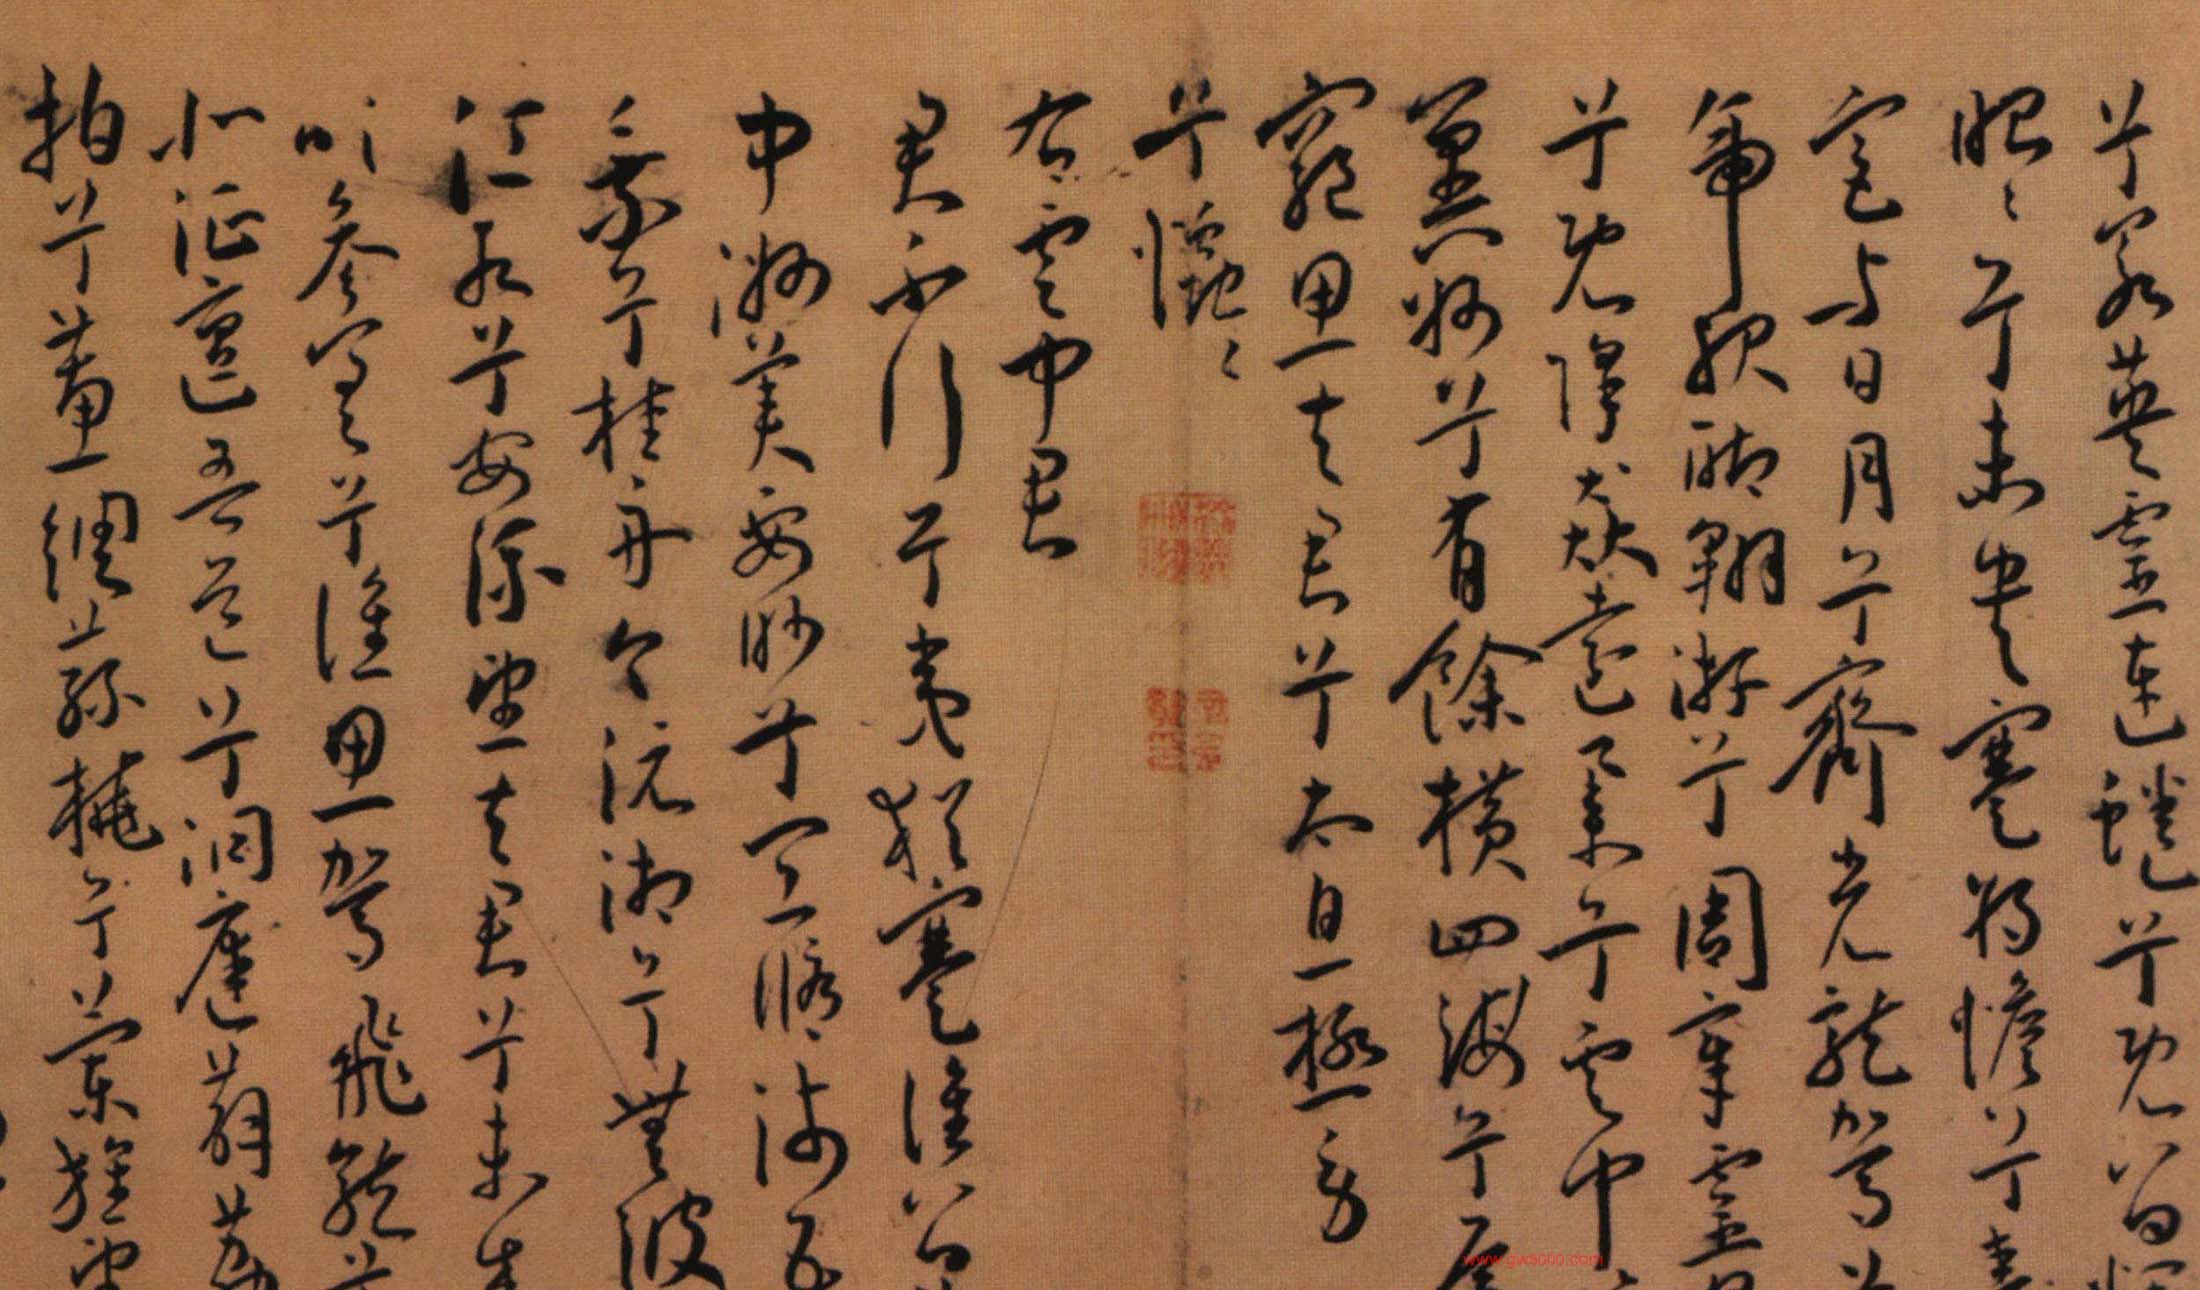 兮若英靈連蜷兮既留爛
昭々兮未央蹇將憺兮壽
宮與日月兮齊光龍駕兮
帝服聊翱游兮周章靈皇
兮既降猋遠舉兮雲中
覽冀州兮有餘橫四海兮焉
窮思夫君兮太息極勞
兮
右雲中君
君不行兮夷猶蹇誰留
中洲美要眇兮宜脩沛吾
乘兮桂舟令沅湘兮無波
江水兮安流望夫君兮未來
吹參差兮誰思駕飛龍兮
北征邅吾道兮洞庭薜荔
拍兮蕙綢蓀橈兮蘭旌望